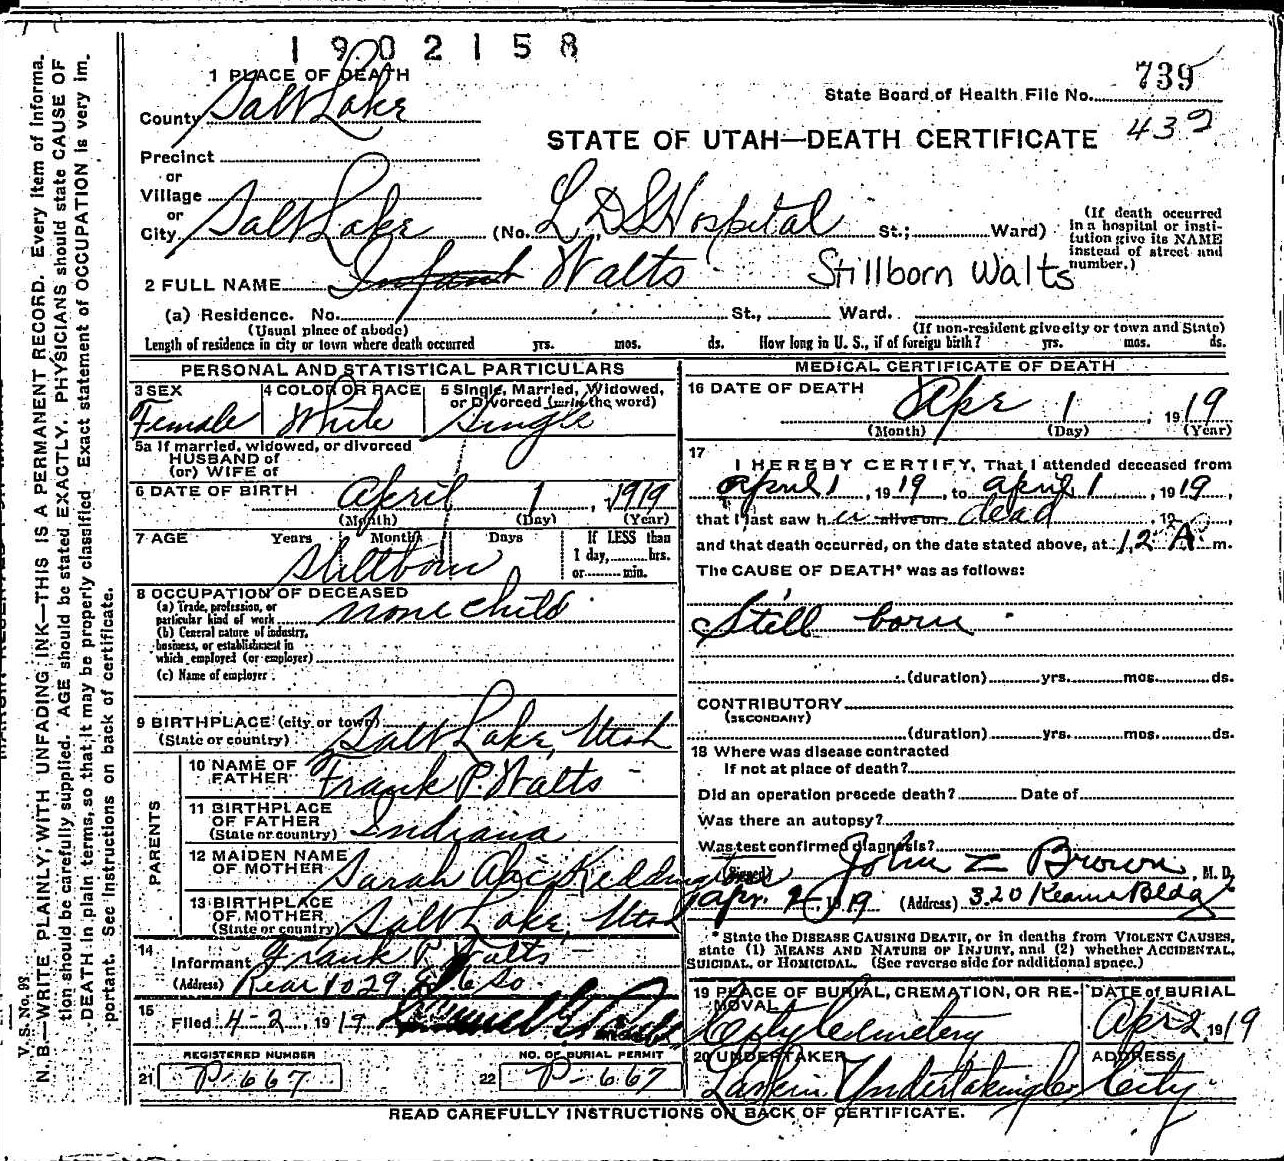 1902158
1 PLACE OF DEATH
739
State Board of Health File No.
County Salt Lake
STATE OF UTAH—DEATH CERTIFICATE 432
Precinct
or
Village
or
City Salt Lake (No. L.D.S Hospital St.; Ward)
(If death occurred
in a hospital or insti-
tution give its NAME
instead of street and
number.)
2 FULL NAME Infant Walts Stillborn Walts
(a) Residence. No. St., Ward.
(Usual place of abode) (If non-resident give city or town and State)
Length of residence in city or town where death occurred yrs. mos. ds. How long in U. S., if of foreign birth? yrs. mos. ds.
PERSONAL AND STATISTICAL PARTICULARS
3 SEX 4 COLOR OR RACE 5 Single, Married, Widowed,
or Divorced (write the word)
Female White Single
5a If married, widowed, or divorced
HUSBAND of
(or) WIFE of
6 DATE OF BIRTH April 1, 1919
(Month) (Day) (Year)
7 AGE Years Months Days If LESS than
1 day, hrs.
or min.
Stillborn
8 OCCUPATION OF DECEASED
(a) Trade, profession, or
particular kind of work none child
(b) General nature of industry,
business, or establishment in
which employed (or employer)
(c) Name of employer
9 BIRTHPLACE (city or town)
(State or country) Salt Lake, Utah
PARENTS
10 NAME OF
FATHER Frank P. Walts
11 BIRTHPLACE
OF FATHER
(State or country) Indiana
12 MAIDEN NAME
OF MOTHER Sarah Keddington
13 BIRTHPLACE
OF MOTHER
(State or country) Salt Lake, Utah
14
Informant Frank P. Walts
(Address) Rear 1029 E 6 So
15
Filed 4-2, 1919
REGISTERED NUMBER NO. OF BURIAL PERMIT
21 P-667 22 P-667
MEDICAL CERTIFICATE OF DEATH
16 DATE OF DEATH Apr 1, 1919
(Month) (Day) (Year)
17
I HEREBY CERTIFY, That I attended deceased from
April 1, 1919, to April 1, 1919,
that I last saw h alive on dead, 19
and that death occurred, on the date stated above, at 12 A m.
The CAUSE OF DEATH* was as follows:
Still born
(duration) yrs. mos. ds.
CONTRIBUTORY
(SECONDARY)
(duration) yrs. mos. ds.
18 Where was disease contracted
If not at place of death?
Did an operation precede death? Date of
Was there an autopsy?
What test confirmed diagnosis?
(Signed) John Z Brown, M. D.
Apr. 2, 1919 (Address) 320 Kearns Bldg
* State the DISEASE CAUSING DEATH, or in deaths from VIOLENT CAUSES,
state (1) MEANS AND NATURE OF INJURY, and (2) whether ACCIDENTAL,
SUICIDAL, or HOMICIDAL. (See reverse side for additional space.)
19 PLACE OF BURIAL, CREMATION, OR RE-
MOVAL
DATE OF BURIAL
City Cemetery Apr 2, 1919
20 UNDERTAKER ADDRESS
Larkin Undertaking Co City
READ CAREFULLY INSTRUCTIONS ON BACK OF CERTIFICATE.
V. S. No. 88
N. B.—WRITE PLAINLY, WITH UNFADING INK—THIS IS A PERMANENT RECORD. Every item of informa-
tion should be carefully supplied. AGE should be stated EXACTLY. PHYSICIANS should state CAUSE OF
DEATH in plain terms, so that it may be properly classified. Exact statement of OCCUPATION is very im-
portant. See instructions on back of certificate.